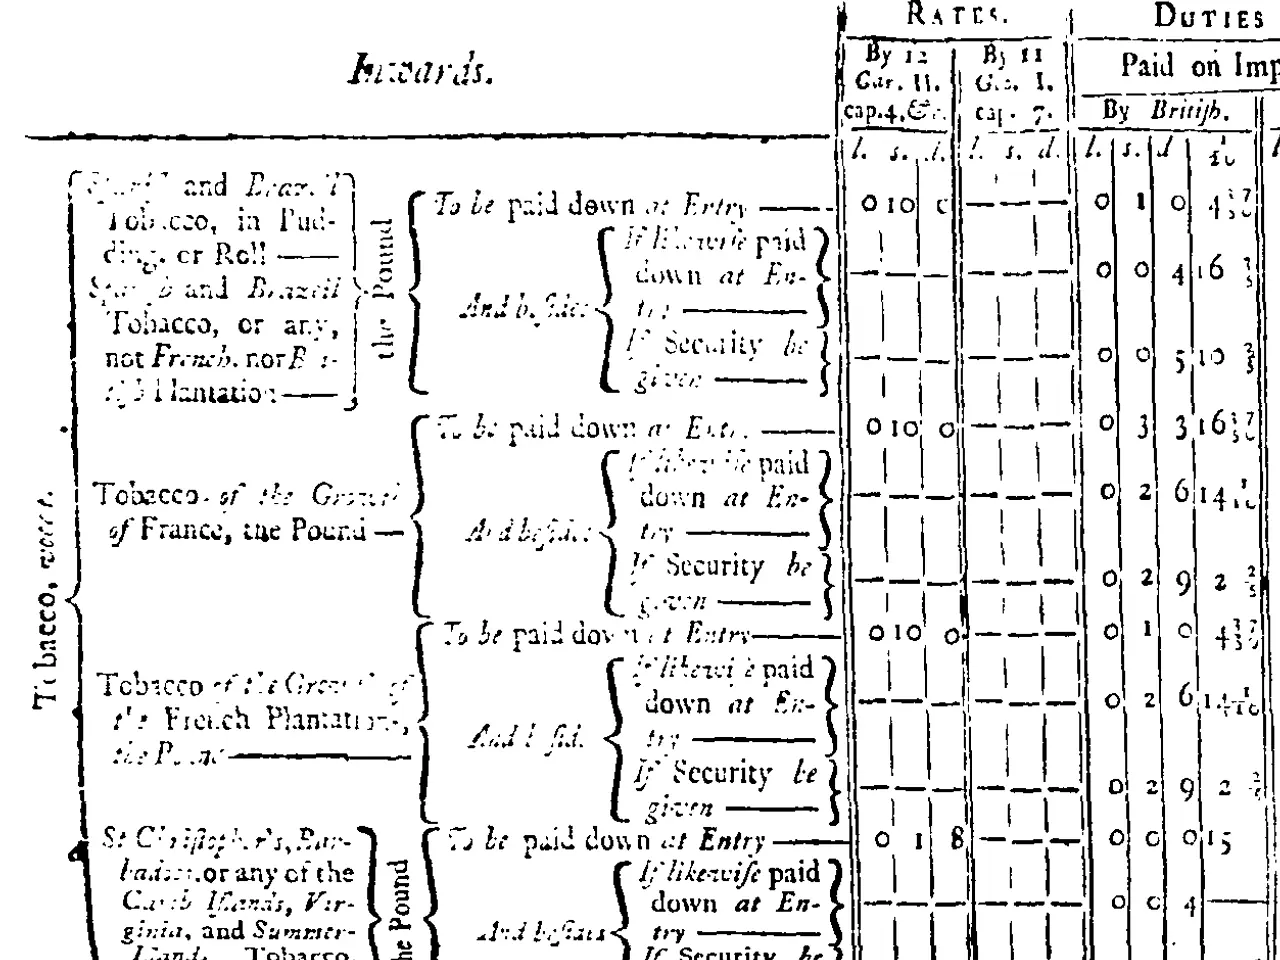 RATES.
DUTIES
Inwards.
By 12 Car. II. cap. 4, &c.
By 11 Geo. I. cap. 7.
Paid on Imp
By British.
l. s. d. l. s. d. l. s. d
Tobacco, vocat.
and Brazil
Tobacco, in Pud-
ding, or Roll ——
Spanish and Brazil
Tobacco, or any,
not French, nor
Plantation ——
the Pound
To be paid down at Entry —— 0 10 0 — — — 0 1 0
And besides
If likewise paid
down at En-
try —— — — — — — — 0 0 4 16
If Security be
given —— — — — — — — 0 0 5 10 2/5
Tobacco of the Growth
of France, the Pound —
To be paid down at Entry —— 0 10 0 — — — 0 3 3 16
And besides
If likewise paid
down at En-
try —— — — — — — — 0 2 6 14
If Security be
given —— — — — — — — 0 2 9 2 2/5
Tobacco of the Growth of
the French Plantations,
the Pound ——
To be paid down at Entry —— 0 10 0 — — — 0 1 0
And besid.
If likewise paid
down at En-
try —— — — — — — — 0 2 6
If Security be
given —— — — — — — — 0 2 9 2
St Christopher's, Bar-
bados, or any of the
Carib Islands, Vir-
ginia, and Summer-
Islands, Tobacco,
the Pound
To be paid down at Entry —— 0 1 8 — — — 0 0 0 15
And besides
If likewise paid
down at En-
try —— — — — 0 0 4 —
If Security be